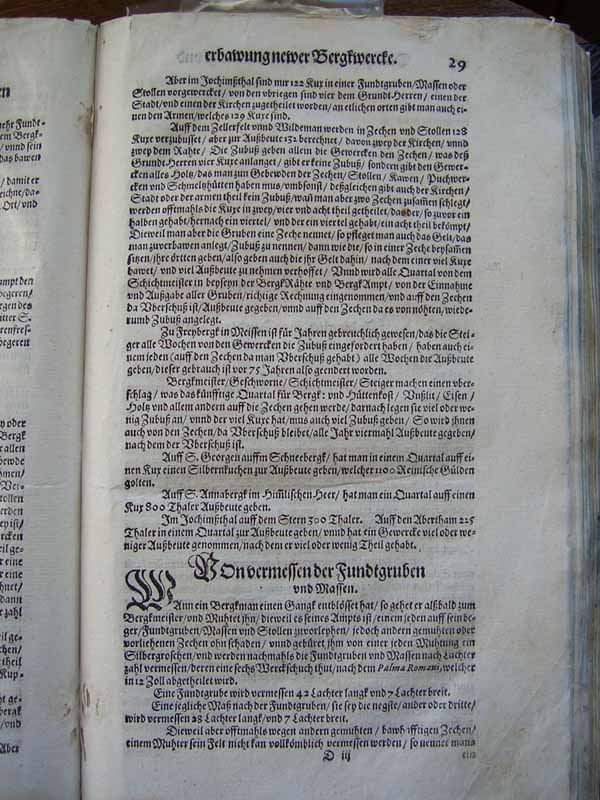 en
ehr Fundt-
em Bergk-
/ vnnd sein
das bawen
/ damit er
zeichne/da-
Ort/vnd
ampt den
begeren/
rgen des
itter S.
renfrey-
begereit
oder
Bergk
allen
bewde
hmen/
Ver-
ollen
ey ist/
cken
eil ge-
r eine
r eine
chnet/
dann
r zahl
il ge-
eil /
theil
Kup-
ht ge-
ergk
/ vnd
Aber
erbawung newer Bergkwercke.
29
Aber im Jochimßthal sind nur 122 Kux in einer Fundtgruben/Massen oder
Stollen vorgewercket/ von den vbriegen sind vier dem Grundt-Herren/ einen der
Stadt/vnd einen der Kirchen zugetheilet worden/an etlichen orten gibt man auch ei-
nen den Armen/welches 129 Kuxe sind.
Auff dem Zellerfelt vnnd Wildeman werden in Zechen vnd Stollen 128
Kuxe verzubusset/ aber zur Außbeute 132 berechnet/ davon zwey der Kirchen/ vnnd
zwey dem Rahte/ Die Zubuß geben allein die Gewercken den Zechen/ was deß
Grundt-Herren vier Kuxe anlanget/ gibt er keine Zubuß/ sondern gibt den Gewer-
cken alles Holtz/das man zun Gebewden der Zechen/ Stollen/ Kawen/ Puchwer-
cken vnd Schmeltzhütten haben mus/vmbsonst/ deßgleichen gibt auch der Kirchen/
Stadt oder der armen theil kein Zubuß/wañ man aber zwo Zechen zusam̃en schlegt/
werden offtmahls die Kuxe in zwey/vier vnd acht theil getheilet/das der/so zuvor ein
halben gehabt/hernach ein viertel/ vnd der ein viertel gehabt/ein acht theil bekõmpt/
Dieweil man aber die Gruben eine Zeche nennet/ so pfleget man auch das Gelt/das
man zuverbawen anlegt/Zubuß zu nennen/ dann wie die/ so in einer Zeche beysam̃en
sitzen/jhre örtten geben/also geben auch die jhr Gelt dahin/ nach dem einer viel Kuxe
bawet/ vnd viel Außbeute zu nehmen verhoffet/ Vnnd wird alle Quartal von dem
Schichtmeister in beyseyn der BergkRähte vnd BergkAmpt/ von der Einnahme
vnd Außgabe aller Gruben/richtige Rechnung eingenommen/vnd auff den Zechen
da Vberschuß ist/Außbeute gegeben/vnnd auff den Zechen da es von nöhten/wide-
rumb Zubuß angelegt.
Zu Freybergk in Meissen ist für Jahren gebreuchlich gewesen/das die Stei-
ger alle Wochen von den Gewercken die Zubuß eingefordert haben/ haben auch ei-
nem jeden (auff den Zechen da man Vberschuß gehabt) alle Wochen die Außbeute
geben/dieser gebrauch ist vor 75 Jahren also geendert worden.
Bergkmeister/ Geschworne/ Schichtmeister/ Steiger machen einen vber-
schlag/ was das künfftige Quartal für Bergk: vnd Hüttenkost/ Vnßlit/ Eisen/
Holtz vnd allem andern auff die Zechen gehen werde/darnach legen sie viel oder we-
nig Zubuß an/ vnnd der viel Kuxe hat/mus auch viel Zubuß geben/ So wird jhnen
auch von den Zechen/da Vberschuß bleibet/alle Jahr viermahl Außbeute gegeben/
nach dem der Vberschuß ist.
Auff S. Georgen auffm Schneebergk/ hat man in einem Quartal auff ei-
nen Kux einen Silbernkuchen zur Außbeute geben/welcher 1100 Reinische Gülden
golten.
Auff S. Annabergk im Him̃lischen-Heer/ hat man ein Quartal auff einen
Kux 800 Thaler Außbeute geben.
Im Jochimßthal auff dem Stern 300 Thaler. Auff den Abertham 225
Thaler in einem Quartal zur Außbeute geben/ vnnd hat ein Gewercke viel oder we-
niger Außbeute genommen/nach dem er viel oder wenig Theil gehabt.
Von vermessen der Fundtgruben
vnd Massen.
WAnn ein Bergkman einen Gangk entblösset hat/ so gehet er alßbald zum
Bergkmeister/vnd Muhtet jhn/ dieweil es seines Ampts ist/ einem jeden auff sein be-
ger/Fundtgruben/Massen vnd Stollen zuvorleyhen/ jedoch andern gemuhten oder
vorliehenen Zechen ohn schaden/ vnnd gebüret jhm von einer jeden Muhtung ein
Silbergroschen/vnd werden nachmahls die Fundtgruben vnd Massen nach Lachter
zahl vermessen/deren eine sechs Werckschuch thut/nach dem Palma Romani, welcher
in 12 Zoll abgetheilet wird.
Eine Fundtgrube wird vermessen 42 Lachter langk vnd 7 Lachter breit.
Eine jegliche Maß nach der Fundtgruben/ sie sey die negste/ander oder dritte/
wird vermessen 28 Lachter langk/vnd 7 Lachter breit.
Dieweil aber offtmahls wegen andern gemuhten/ bawhafftigen Zechen/
einem Muhter sein Felt nicht kan vollkömblich vermessen werden/ so nennet mans
D iij
ein